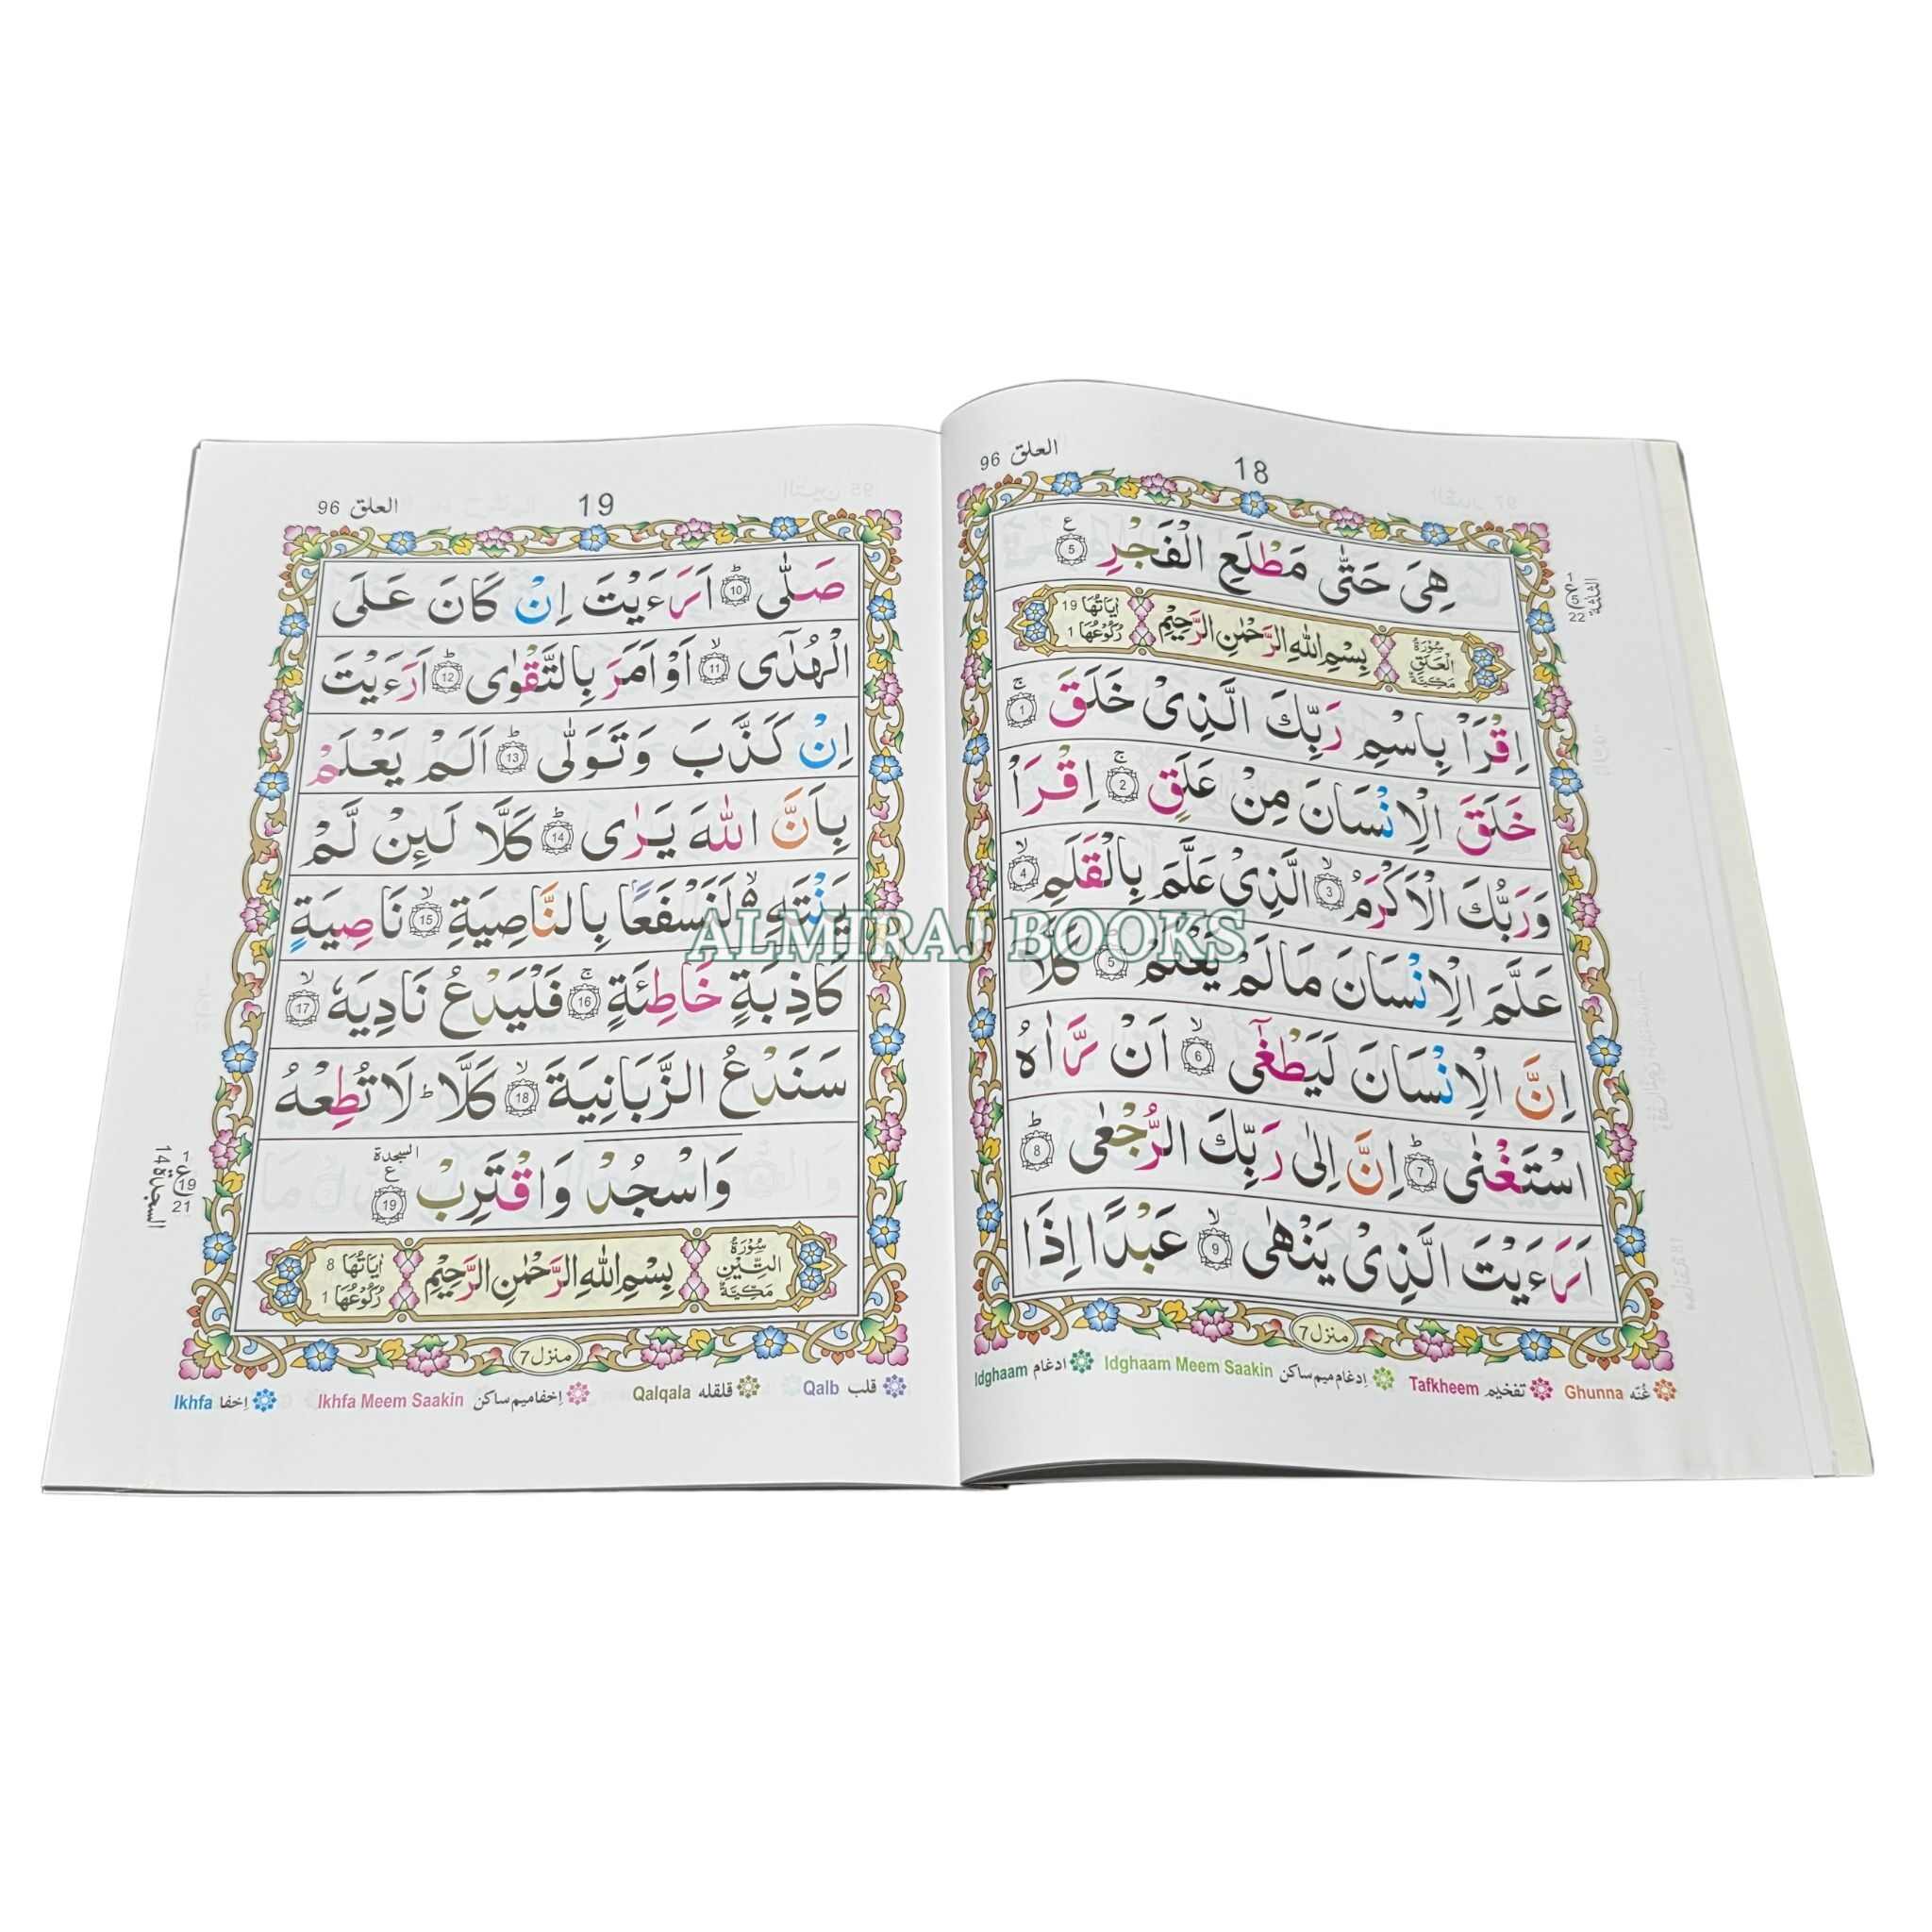 العلق 96
18
هِىَ حَتّٰى مَطْلَعِ الْفَجْرِ 5 ع
سُوْرَةُ الْعَلَقِ مَكِّيَّةٌ
بِسْمِ اللّٰهِ الرَّحْمٰنِ الرَّحِيْمِ
اٰيَاتُهَا 19
رُكُوْعُهَا 1
اِقْرَاْ بِاسْمِ رَبِّكَ الَّذِىْ خَلَقَ 1 ج
خَلَقَ الْاِنْسَانَ مِنْ عَلَقٍ 2 ج اِقْرَاْ
وَرَبُّكَ الْاَكْرَمُ 3 لا الَّذِىْ عَلَّمَ بِالْقَلَمِ 4 لا
عَلَّمَ الْاِنْسَانَ مَالَمْ يَعْلَمْ 5 كَلَّا
اِنَّ الْاِنْسَانَ لَيَطْغٰٓى 6 لا اَنْ رَّاٰهُ
اسْتَغْنٰى 7 ط اِنَّ اِلٰى رَبِّكَ الرُّجْعٰى 8 ط
اَرَءَيْتَ الَّذِىْ يَنْهٰى 9 لا عَبْدًا اِذَا
منزل 7
غُنّه Ghunna
تفخيم Tafkheem
اِدغام ميم ساكن Idghaam Meem Saakin
ادغام Idghaam
الثلثة
1
5
22
العلق 96
19
صَلّٰى 10 ط اَرَءَيْتَ اِنْ كَانَ عَلَى
الْهُدٰٓى 11 لا اَوْ اَمَرَ بِالتَّقْوٰى 12 ط اَرَءَيْتَ
اِنْ كَذَّبَ وَتَوَلّٰى 13 ط اَلَمْ يَعْلَمْ
بِاَنَّ اللّٰهَ يَرٰى 14 ط كَلَّا لَئِنْ لَّمْ
يَنْتَهِ ە لا لَنَسْفَعًا بِالنَّاصِيَةِ 15 لا نَاصِيَةٍ
كَاذِبَةٍ خَاطِئَةٍ 16 ج فَلْيَدْعُ نَادِيَهٗ 17 لا
سَنَدْعُ الزَّبَانِيَةَ 18 لا كَلَّا ط لَا تُطِعْهُ
وَاسْجُدْ وَاقْتَرِبْ 19 السجدة ع
سُوْرَةُ التِّيْنِ مَكِّيَّةٌ
بِسْمِ اللّٰهِ الرَّحْمٰنِ الرَّحِيْمِ
اٰيَاتُهَا 8
رُكُوْعُهَا 1
منزل 7
قلب Qalb
قلقله Qalqala
اِخفا ميم ساكن Ikhfa Meem Saakin
اِخفا Ikhfa
1
19
21
السجدة 14
ALMIRAJ BOOKS